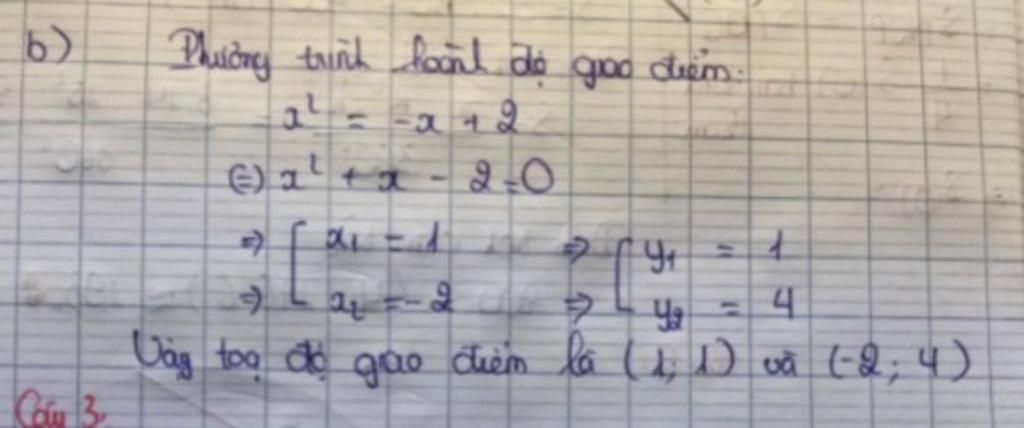 b) Phương trình hoành độ giao điểm:
x² = -x + 2
(=) x² + x - 2 = 0
=> [ x₁ = 1 => [ y₁ = 1
=> [ x₂ = -2 => [ y₂ = 4
Vậy toạ độ giao điểm là (1; 1) và (-2; 4)
Câu 3.